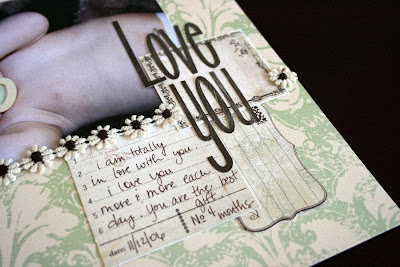 Love
you
2. i am totally
3. in love with you.
4. i love you
5. more & more each
6. day. you are the best
gift
No 4 months.
date: 11/12/06